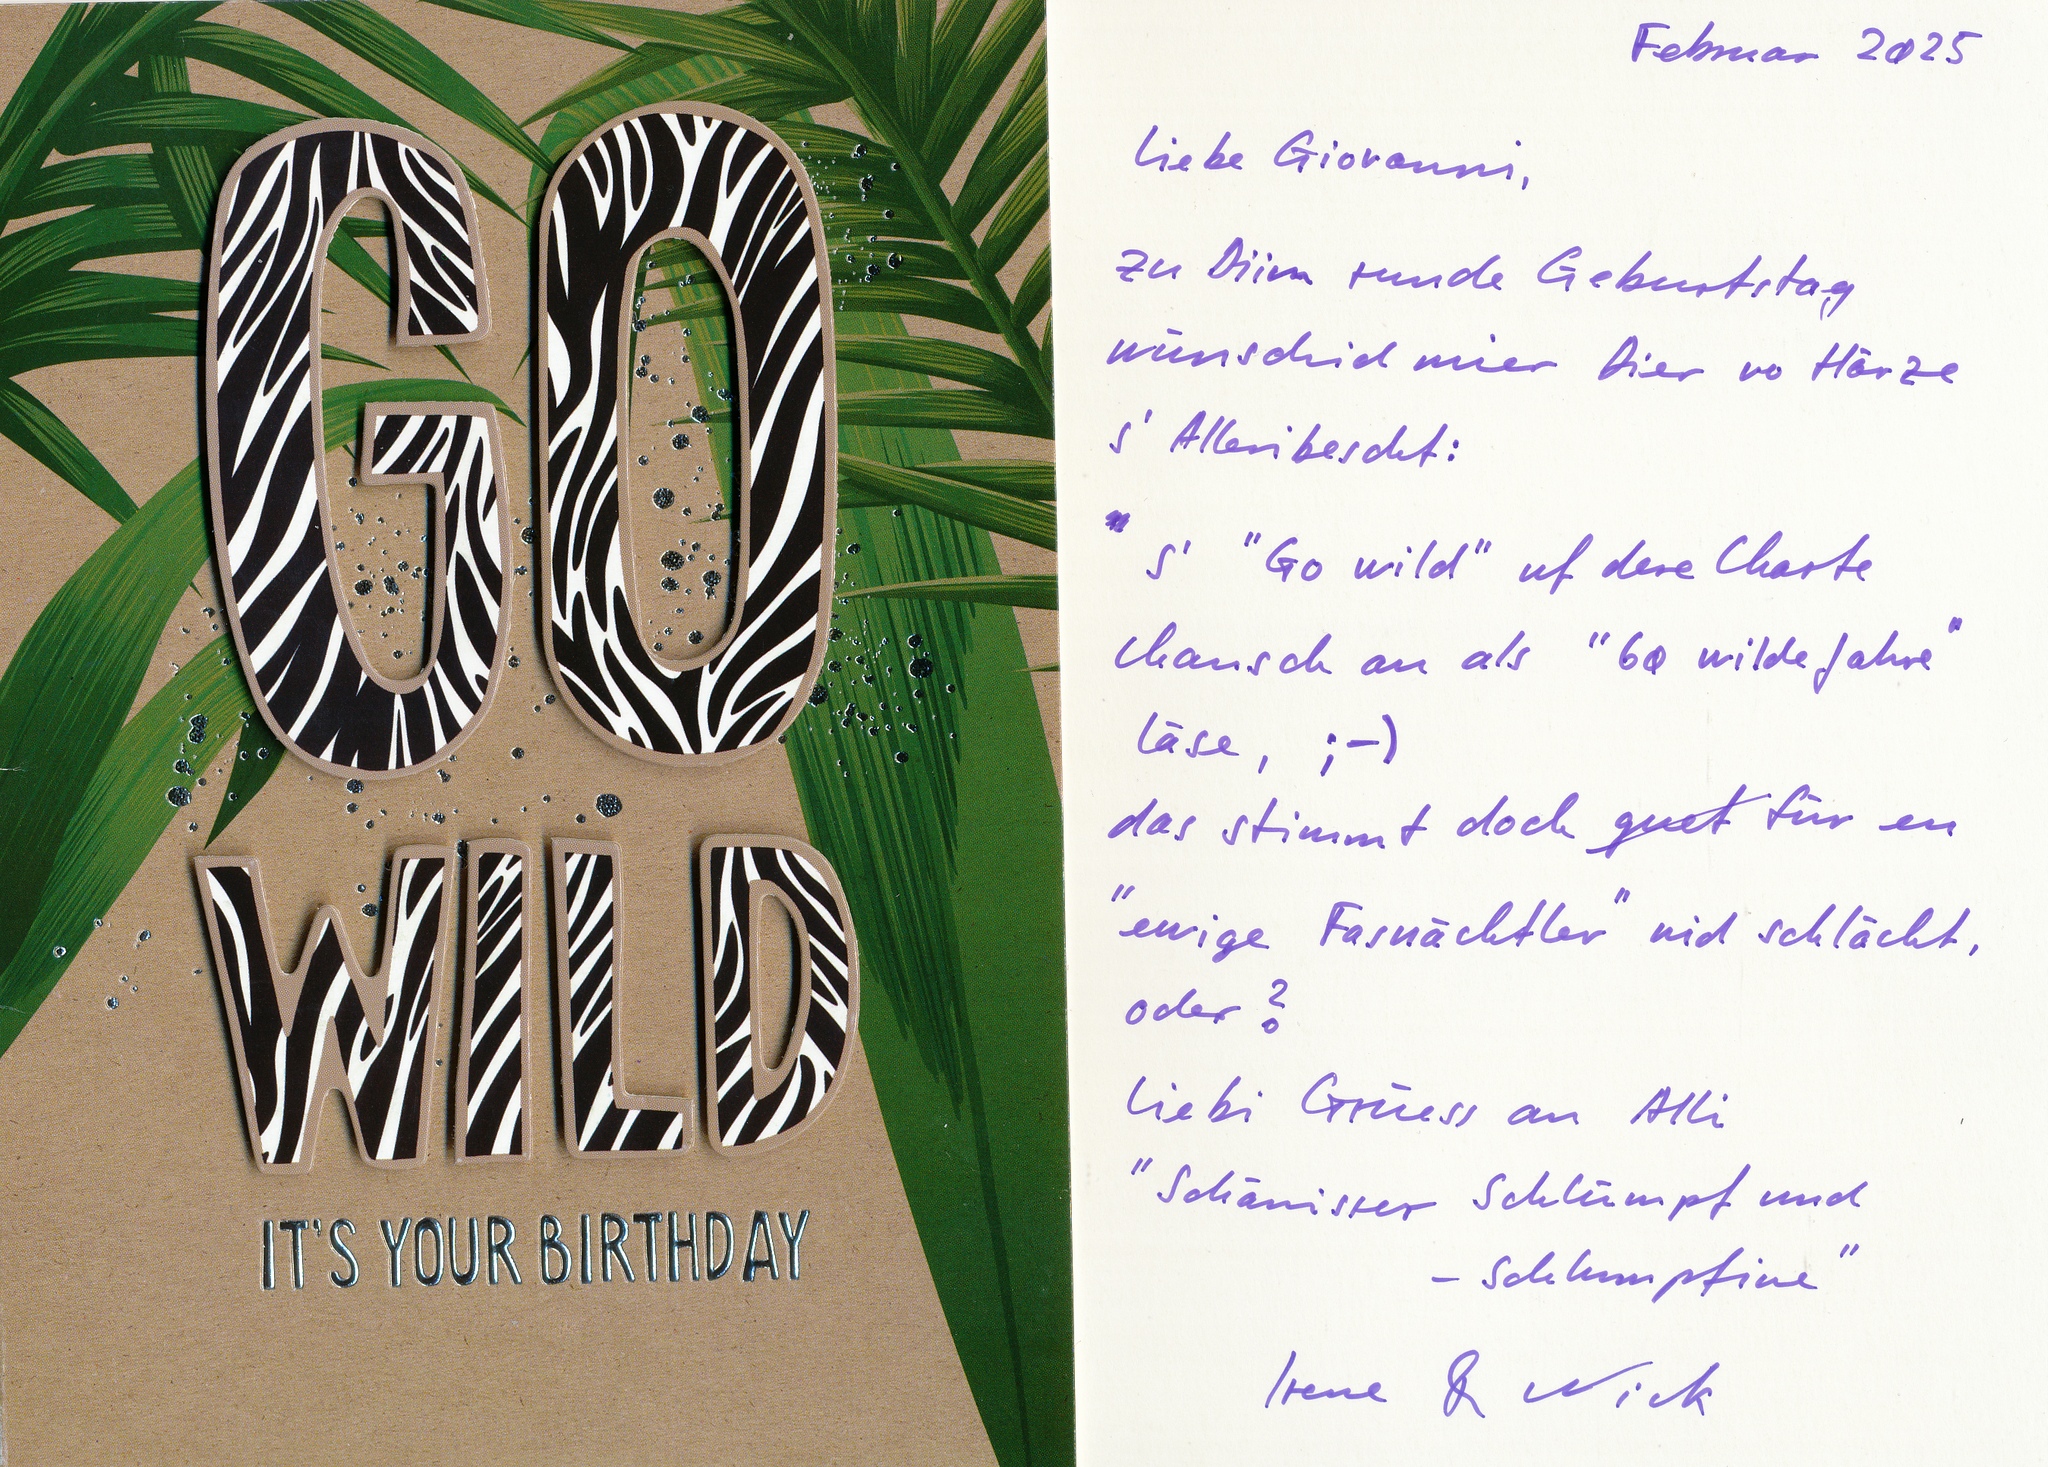 GO
WILD
IT'S YOUR BIRTHDAY
Februar 2025
Liebe Giovanni,
zu Diim runde Geburtstag
wünschid mier Dier vo Härze
s' Alleribescht:
" s' "Go wild" uf dere Charte
chansch au als "60 wilde Jahre"
läse, ;-)
das stimmt doch guet für en
"ewige Fasnächtler" nid schlächt,
oder?
Liebi Grüess an Alli
"Schänisser Schlümpf und
- Schlumpfine"
Irene & Nick